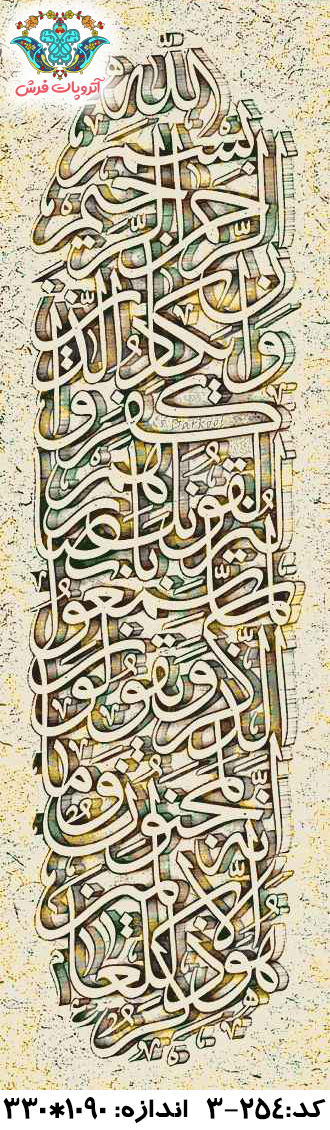 آتروپات فرش
بسم الله
الرحمن الرحيم
وان يكاد الذين
كفروا
ليزلقونك بابصارهم
لما سمعوا
الذكر ويقولون
انه لمجنون وما
هو الا ذكر للعالمين
کد:۲۵٤-۳ اندازه: ۱۰۹۰*۳۳۰